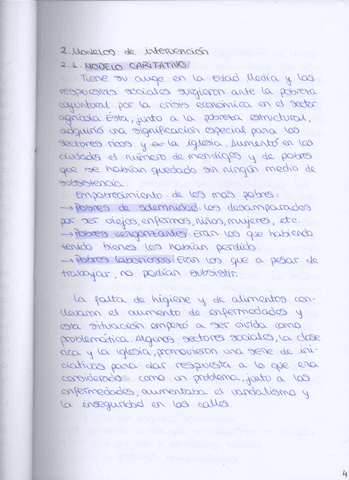 2. Modelos de intervención
2.1. MODELO CARITATIVO
Tiene su auge en la Edad Media y las
respuestas sociales surgieron ante la pobreza
coyuntural por la crisis económica en el sector
agrícola. Esta, junto a la pobreza estructural,
adquirió una significación especial para los
sectores ricos y la Iglesia. Aumentó en las
ciudades el número de mendigos y de pobres
que se habían quedado sin ningún medio de
subsistencia.
Empobrecimiento de los más pobres:
→ Pobres de solemnidad: los desamparados
por ser viejos, enfermos, niños, mujeres, etc.
→ Pobres vergonzantes: Eran los que habiendo
tenido bienes los habían perdido.
→ Pobres laboriosos: Eran los que a pesar de
trabajar, no podían subsistir.
La falta de higiene y de alimentos con-
llevaron el aumento de enfermedades y
esta situación empezó a ser vivida como
problemática. Algunos sectores sociales, la clase
rica y la Iglesia, promovieron una serie de ini-
ciativas para dar respuesta a lo que era
considerado como un problema, junto a las
enfermedades, aumentaba el vandalismo y
la inseguridad en las calles.
4